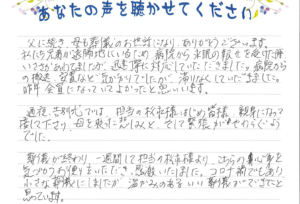 あなたの声を聴かせてください
父に続き、母も葬儀のお世話になり ありがとうございます。
私たち兄弟が遠隔地にいるため 病院から 訃報の報せを受け
ありましたが、迅速に対応していただきました。病院から
の搬送、安置など 滞りなくしていただきました。
昨年 会員になっていてよかったと思いいます。
通夜、告別式では 担当の 様はじめ皆様 親身になって
接して下さり、母を
でした。
葬儀が終わり、一週間して担当の 様より、こちらの
気づかうお便りをいただき、感激いたしました。コロナ禍でもあり
小さな葬儀にしましたが 温かみのあるいい葬儀ができたと
思っています。